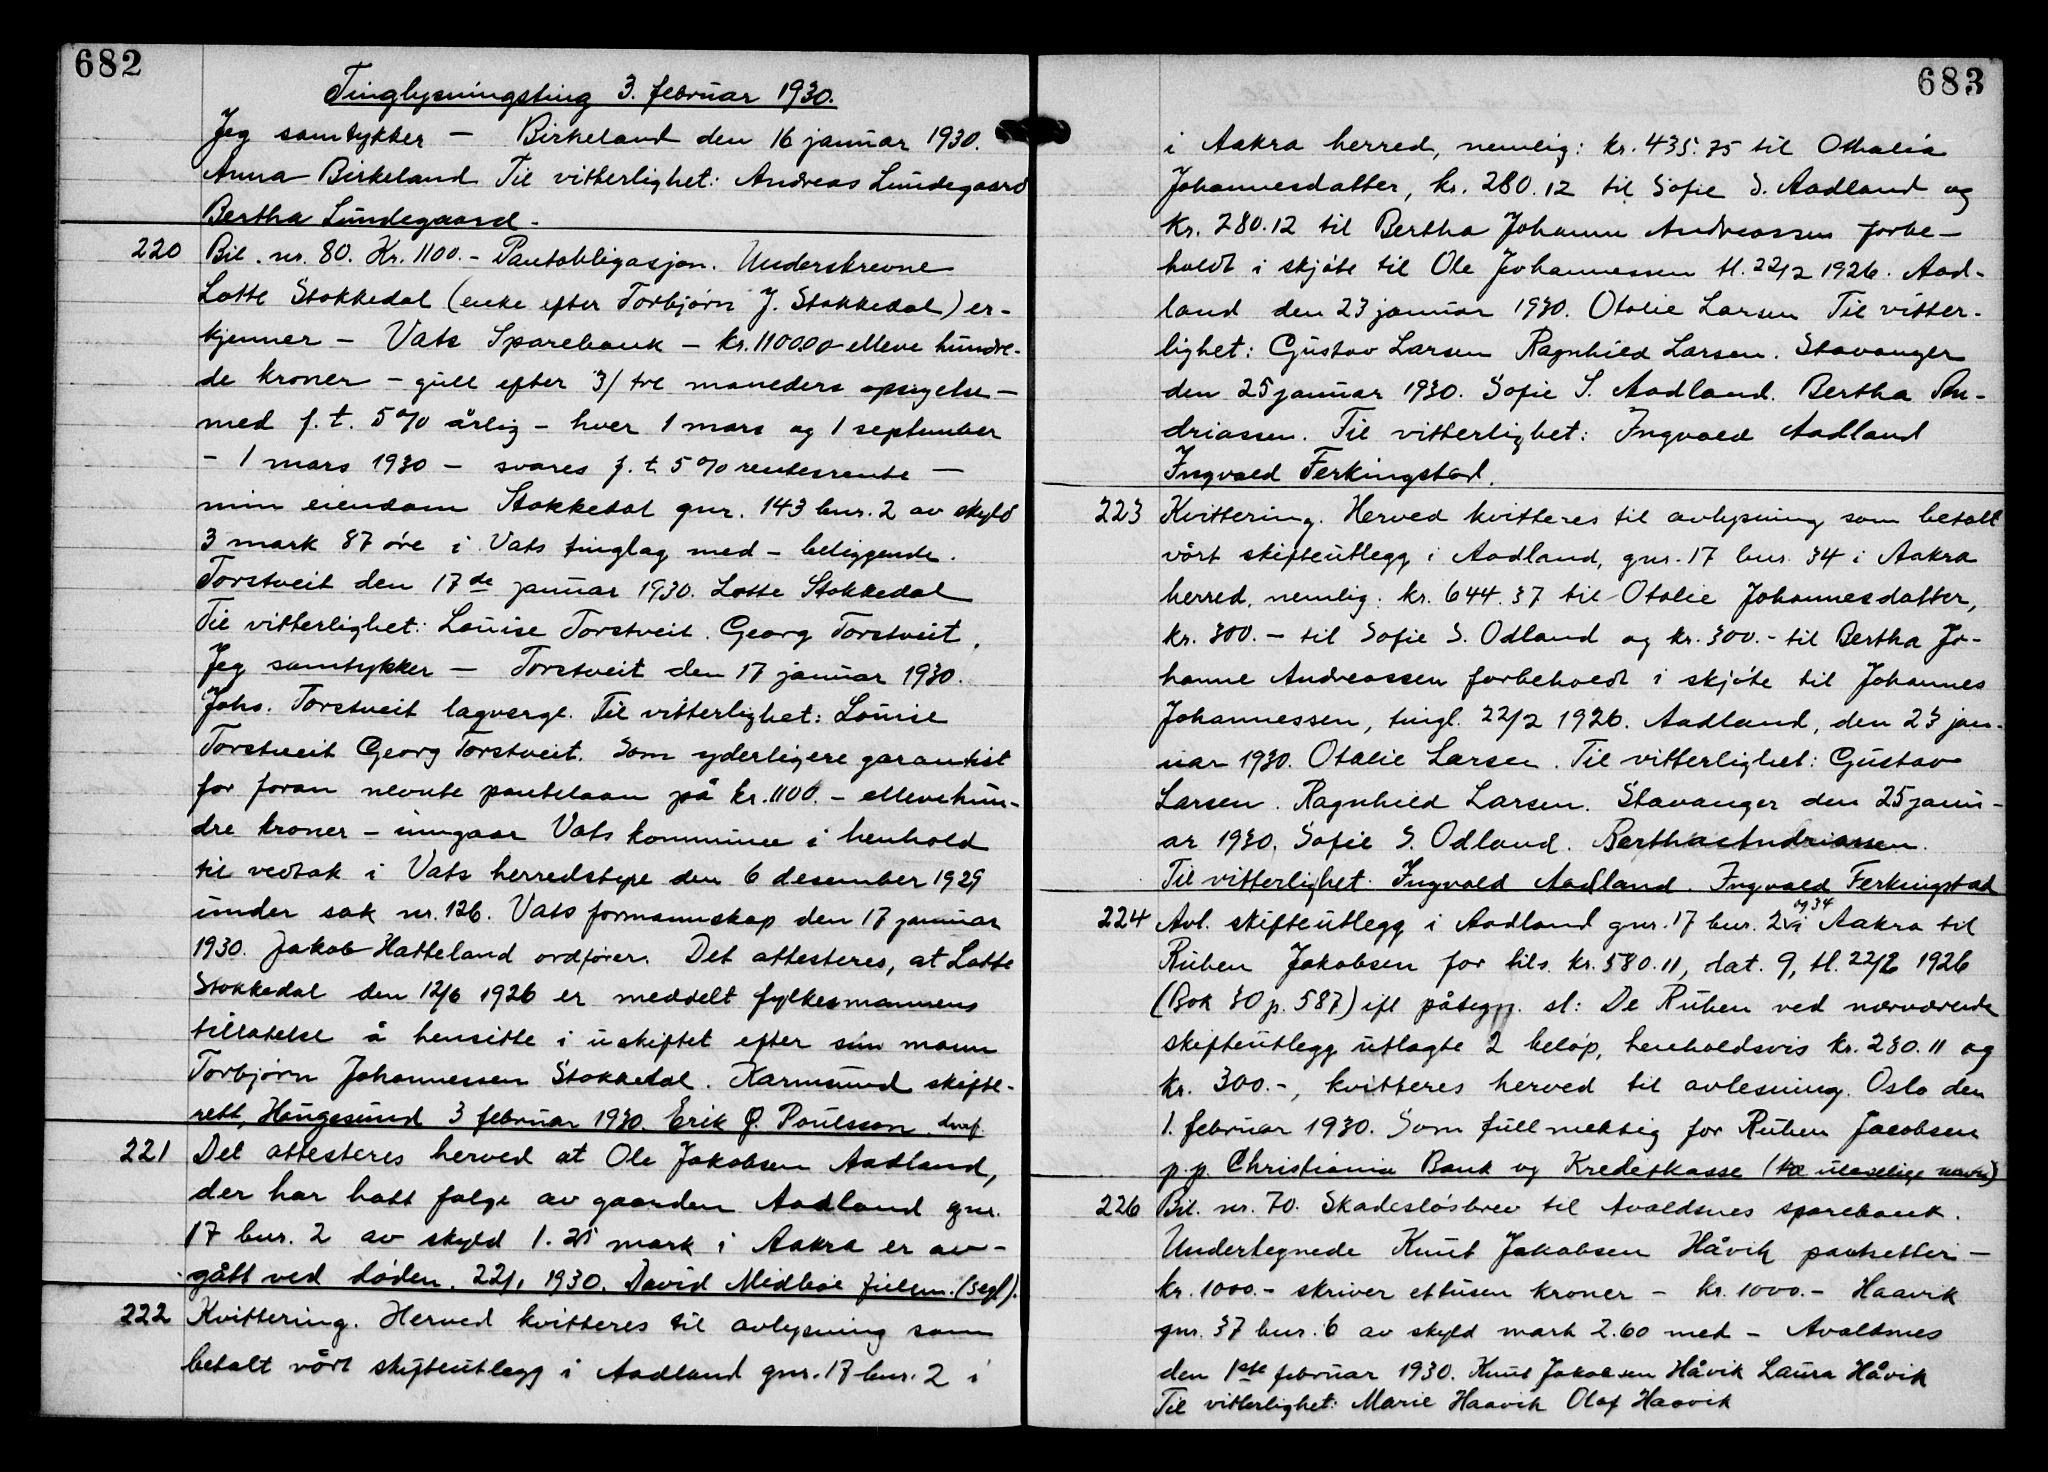 682
Tinglysningsting 3. februar 1930.
Jeg samtykker – Birkeland den 16 januar 1930.
Anna Birkeland Til vitterlighet: Andreas Lundegaard
Bertha Lundegaard.
220 Bil. nr. 80. Kr. 1100.- Pantobligasjon. Underskrevne
Lotte Stokkedal (enke efter Torbjørn J. Stokkedal) er-
kjenner – Vats Sparebank – kr. 1100.00 elleve hundre-
de kroner – gull efter 3/ tre maneders opsigelse –
med f. t. 5 % årlig – hver 1 mars og 1 september
– 1 mars 1930 – svares f. t. 5 % rentesrente –
min eiendom Stokkedal gnr. 143 bnr. 2 av skyld
3 mark 87 øre i Vats tinglag med – beliggende.
Torstveit den 17de januar 1930. Lotte Stokkedal
Til vitterlighet: Louise Torstveit. Georg Torstveit.
Jeg samtykker – Torstveit den 17 januar 1930.
Johs. Torstveit lagverge. Til vitterlighet: Louise
Torstveit Georg Torstveit. Som yderligere garantist
for foran nevnte pantelaan på kr. 1100.- ellevehun-
dre kroner – inngaar Vats kommune i henhold
til vedtak i Vats herredstyre den 6 desember 1929
under sak nr. 126. Vats formannskap den 17 januar
1930. Jakob Hatteland ordfører. Det attesteres, at Lotte
Stokkedal den 12/6 1926 er meddelt fylkesmannens
tillatelse å hensitte i uskiftet efter sin mann
Torbjørn Johannessen Stokkedal. Karmsund skifte-
rett, Haugesund 3 februar 1930. Erik Ø. Poulsson
221 Det attesteres herved at Ole Jakobsen Aadland,
der har hatt følge av gaarden Aadland gnr.
17 bnr. 2 av skyld 1.25 mark i Aakra er av-
gått ved døden. 22/1 1930. David Midbøe fullm. (segl).
222 Kvittering. Herved kvitteres til avlysning som
betalt vårt skifteutlegg i Aadland gnr. 17 bnr. 2 i
683
i Aakra herred, nemlig: kr. 435.75 til Othalia
Johannesdatter, kr. 280.12 til Sofie S. Aadland og
kr. 280.12 til Bertha Johanne Andreassen forbe-
holdt i skjøte til Ole Johannessen tl. 22/2 1926. Aad-
land den 23 januar 1930. Otalie Larsen Til vitter-
lighet: Gustav Larsen Ragnhild Larsen. Stavanger
den 25 januar 1930. Sofie S. Aadland. Bertha An-
driassen. Til vitterlighet: Ingvald Aadland
Ingvald Ferkingstad.
223 Kvittering. Herved kvitteres til avlysning som betalt
vårt skifteutlegg i Aadland, gnr. 17 bnr. 34 i Aakra
herred, nemlig: kr. 644.37 til Otalie Johannesdatter,
kr. 300.- til Sofie S. Odland og kr. 300.- til Bertha Jo-
hanne Andreassen forbeholdt i skjøte til Johannes
Johannessen, tingl. 22/2 1926. Aadland, den 23 jan-
uar 1930. Otalie Larsen. Til vitterlighet: Gustav
Larsen. Ragnhild Larsen. Stavanger den 25 janu-
ar 1930. Sofie S. Odland. Bertha Andriassen.
Til vitterlighet: Ingvald Aadland. Ingvald Ferkingstad
224 Avl. skifteutlegg i Aadland gnr. 17 bnr. 2 og 34 i Aakra til
Ruben Jakobsen for tils. kr. 580.11, dat. 9, tl. 22/2 1926
(Bok 30 p. 587) ifl påtegn. sl: De Ruben ved nærværende
skifteutlegg utlagte 2 beløp, henholdsvis kr. 280.11 og
kr. 300.-, kvitteres herved til avlesning. Oslo den
1. februar 1930. Som fullmektig for Ruben Jacobsen
p.p. Christiania Bank og Kreditkasse (to ulæselige navne)
226 Bil. nr. 70. Skadesløsbrev til Avaldsnes sparebank.
Undertegnede Knut Jakobsen Håvik pantsetter –
kr. 1000.- skriver ettusen kroner – kr. 1000.- Haavik
gnr. 37 bnr. 6 av skyld mark 2.60 med – Avaldsnes
den 1ste februar 1930. Knut Jakobsen Håvik Laura Håvik
Til vitterlighet: Marie Haavik Olaf Haavik